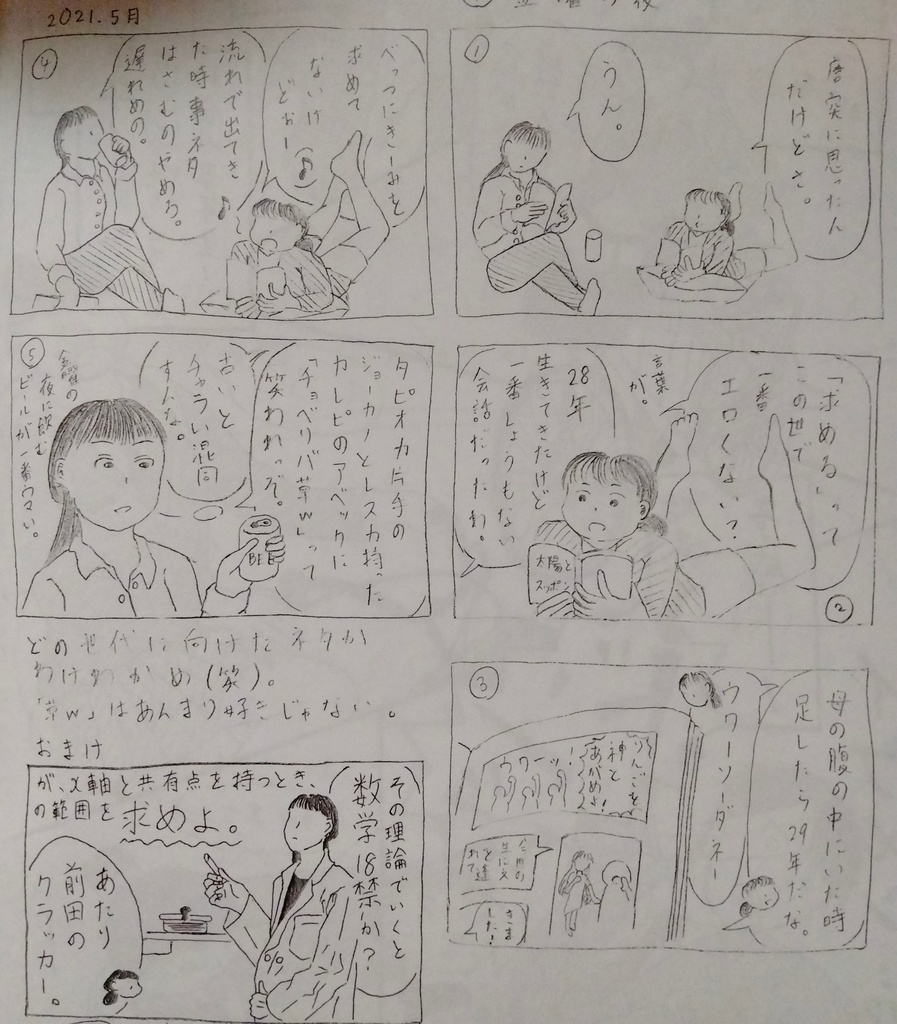 2021.5月
①
唐突に思ったん
だけどさ。
うん。
②
「求める」って
この世で
一番
エロくない？
言葉
が。
28年
生きてきたけど
一番しょうもない
会話だったわ。
太陽と
スッポン
③
母の腹の中にいた時
足したら29年だな。
ウワーソーダネー
りんごを
神と
あがめよ！
ウワーッ！
④
べっつにきーみを
求めて
ないけ
どぉー♪
♪
流れで出てき
た時事ネタ
はさむのやめろ。
遅れめの。
⑤
タピオカ片手の
ジョーカノとレスカ持った
カレピのアベックに
「チョベリバ草w」って
笑われっぞ。
古いと
チャラい混同
すんな。
金曜の
夜に飲む
ビールが一番ウマい。
BEE
どの世代に向けたネタか
わけわかめ(笑)。
「草w」はあんまり好きじゃない。
おまけ
その理論でいくと
数学18禁か？
が、x軸と共有点を持つとき、
の範囲を求めよ。
あたり
前田の
クラッカー。